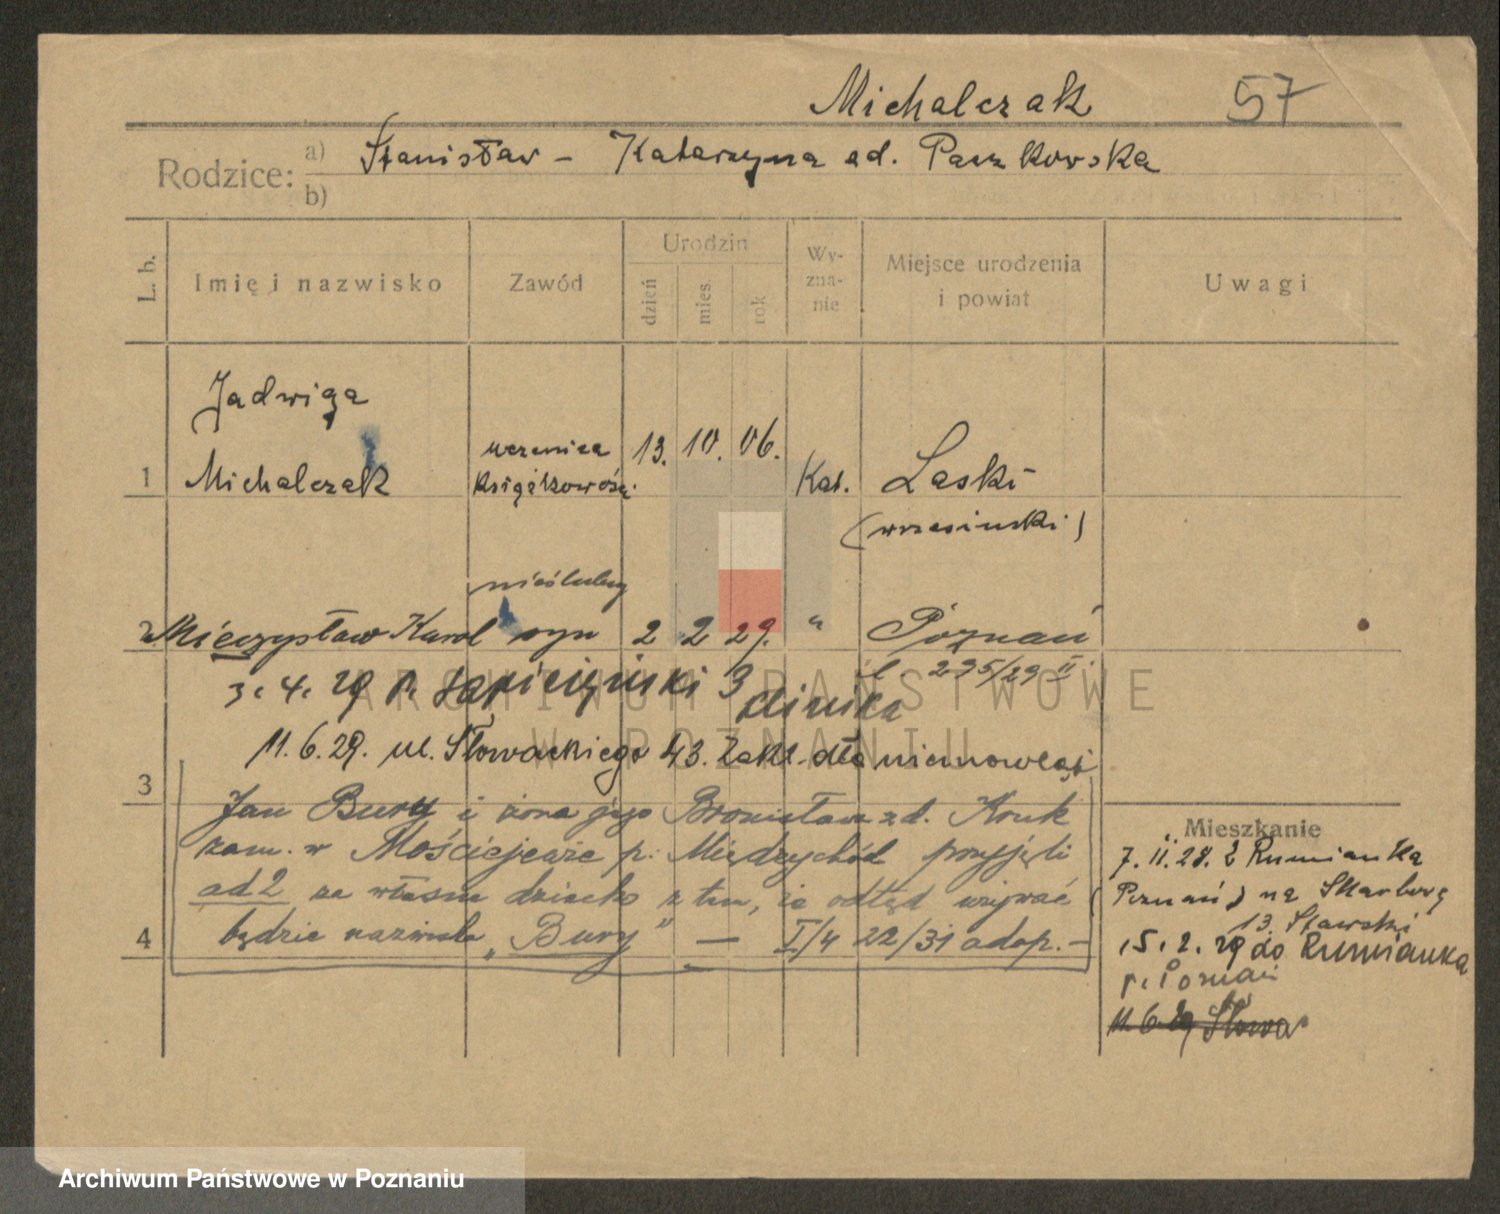 Michalczak 57
Rodzice: a) Stanisław – Katarzyna zd. Paszkowska
b)
L. b. Imię i nazwisko Zawód Urodzin dzień mies. rok Wyznanie Miejsce urodzenia i powiat Uwagi
Jadwiga
1 Michalczak uczenica księgkowość. 13. 10. 06. Kat. Laski
(wrzesiński)
nieślubny
2 Mieczysław Karol syn 2 2 29. " Poznań
l. 295/29 II
3. 4. 29 3 clinika
11. 6. 29. ul. Słowackiego 43. Zakł. dla niemowląt
3
Jan Bury i żona jego Bronisława zd. Kruk
zam. w Mościejewie p. Międzychód przyjęli
ad 2 za własne dziecko z tem, że odtąd używać
4 będzie nazwiska „Bury" — I/4 22/31 adop. –
Mieszkanie
7. II. 28. z Rumianka
(Poznań) na Skarbową
13. Sławski
15. 2. 29 do Rumianka
p. Poznań
11. 6. 29 Słowa
ARCHIWUM PAŃSTWOWE
W POZNANIU
Archiwum Państwowe w Poznaniu